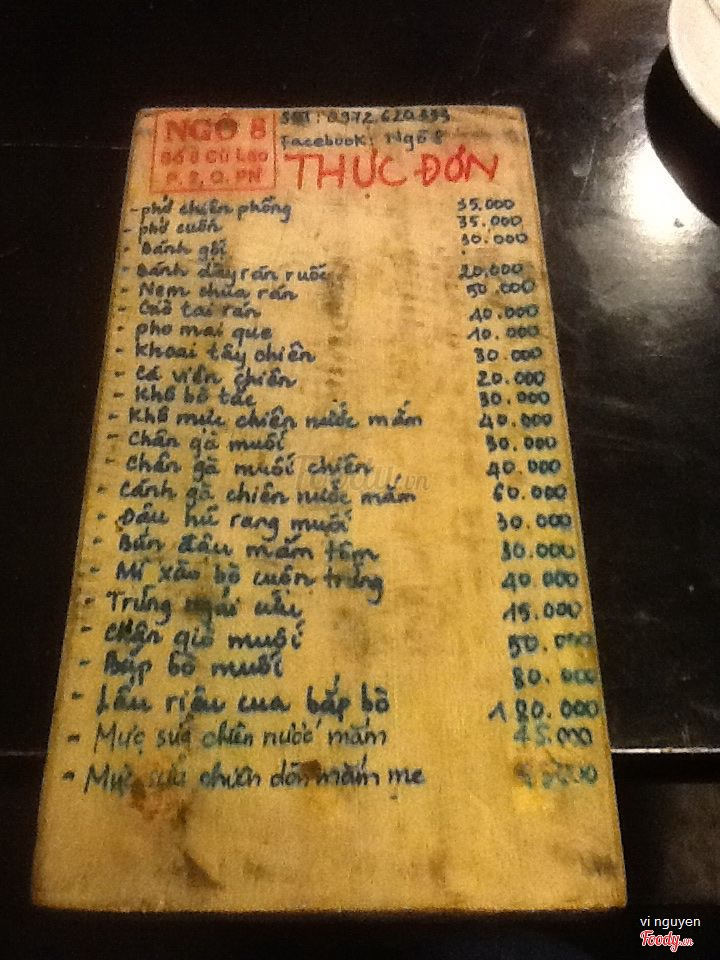 NGÕ 8
Số 8 Cù Lao
P. 2, Q. PN
SĐT: 0972.620.
Facebook: Ngõ 8
THỰC ĐƠN
- phở chiên phồng 35.000
- phở cuốn 35.000
- Bánh gối 30.000
- Bánh dày rán ruốc 20.000
- Nem chua rán 50.000
- Giò tai rán 40.000
- pho mai que 10.000
- Khoai tây chiên 30.000
- Cá viên chiên 20.000
- Khô bò tắc 30.000
- Khô mực chiên nước mắm 40.000
- Chân gà muối 30.000
- Chân gà muối chiên 40.000
- Cánh gà chiên nước mắm 60.000
- Đậu hủ rang muối 30.000
- Bún đậu mắm tôm 30.000
- Mì xào bò cuộn trứng 40.000
- Trứng ngải cứu 15.000
- Chân giò muối 50.000
- Bắp bò muối 80.000
- Lẩu riêu cua bắp bò 180.000
- Mực sữa chiên nước mắm 45.000
- Mực sữa chiên dòn mắm me
Foody.vn
vi nguyen
Foody.vn